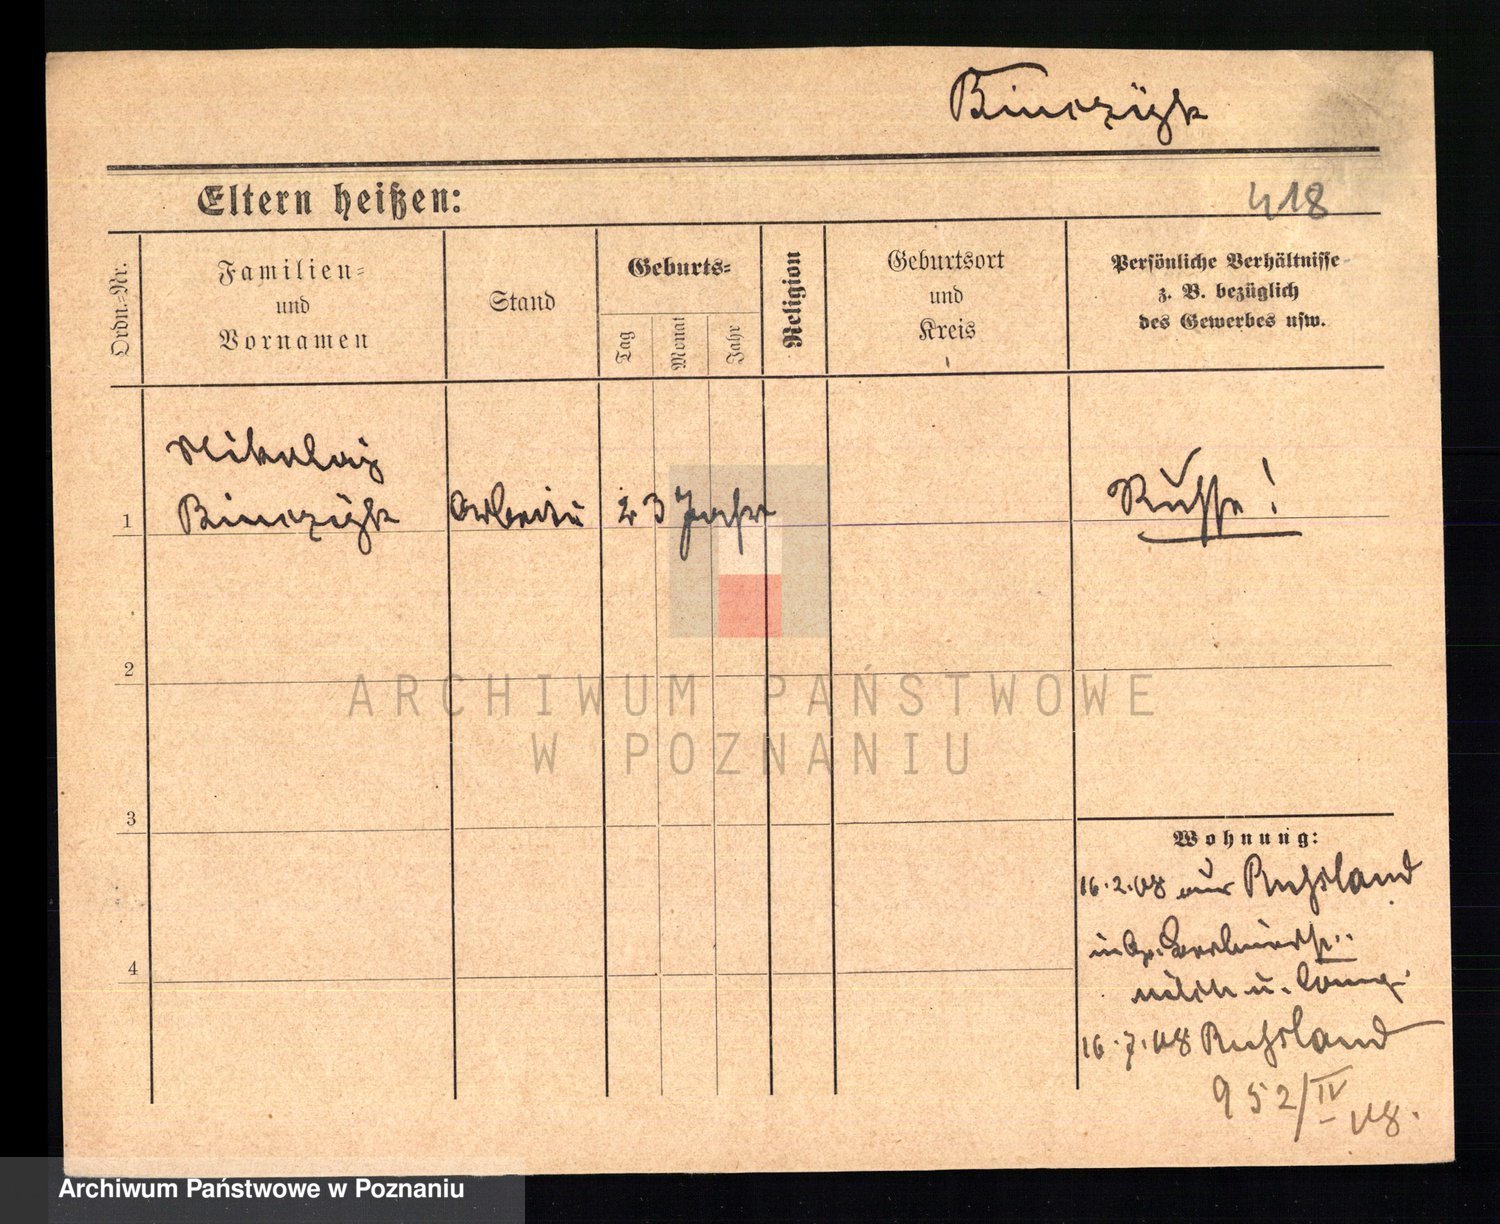 Binczÿk
Eltern heißen:
418
Ordn.-Nr.
Familien-
und
Vornamen
Stand
Geburts-
Tag
Monat
Jahr
Religion
Geburtsort
und
Kreis
Persönliche Verhältnisse
z. B. bezüglich
des Gewerbes usw.
Nikolaj
1 Binczÿk Arbeiter 23 Jahr Russe!
2
3
Wohnung:
16.2.08 aus Russland
4
u.
16.7.08 Russland
952/IV 08.
ARCHIWUM PAŃSTWOWE
W POZNANIU
Archiwum Państwowe w Poznaniu